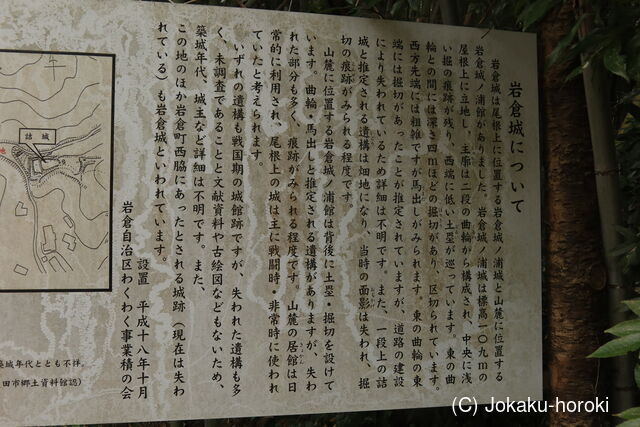 岩倉城について
岩倉城は尾根上に位置する岩倉城ノ浦城と山麓に位置する
岩倉城ノ浦館がありました。岩倉城ノ浦城は標高一〇九ｍの
屋根上に立地し、主廓は二段の曲輪から構成され、中央に浅
い掘の痕跡が残り、西端に低い土塁が巡っています。東の曲
輪との間には深さ四ｍほどの掘切があり、区切られています。
西方先端には粗雑ですが馬出しがみられます。東の曲輪の東
端には掘切があったことが推定されていますが、道路の建設
により失われているため詳細は不明です。また、一段上の詰
城と推定される遺構は畑地になり、当時の面影は失われ、掘
切の痕跡がみられる程度です。
山麓に位置する岩倉城ノ浦館は背後に土塁・掘切を設けて
います。曲輪・馬出しと推定される遺構がありますが、失わ
れた部分も多く、痕跡がみられる程度です。山麓の居館は日
常的に利用され、尾根上の城は主に戦闘時・非常時に使われ
ていたと考えられます。
いずれの遺構も戦国期の城館跡ですが、失われた遺構も多
く、未調査であることと文献資料や古絵図などもないため、
築城年代、城主など詳細は不明です。また、
この地のほか岩倉町西脇にあったとされる城跡（現在は失わ
れている）も岩倉城といわれています。
設置 平成十八年十月
岩倉自治区わくわく事業積の会
詰城
築城年代ともと不祥。
田市郷土資料館認）
(C) Jokaku-horoki